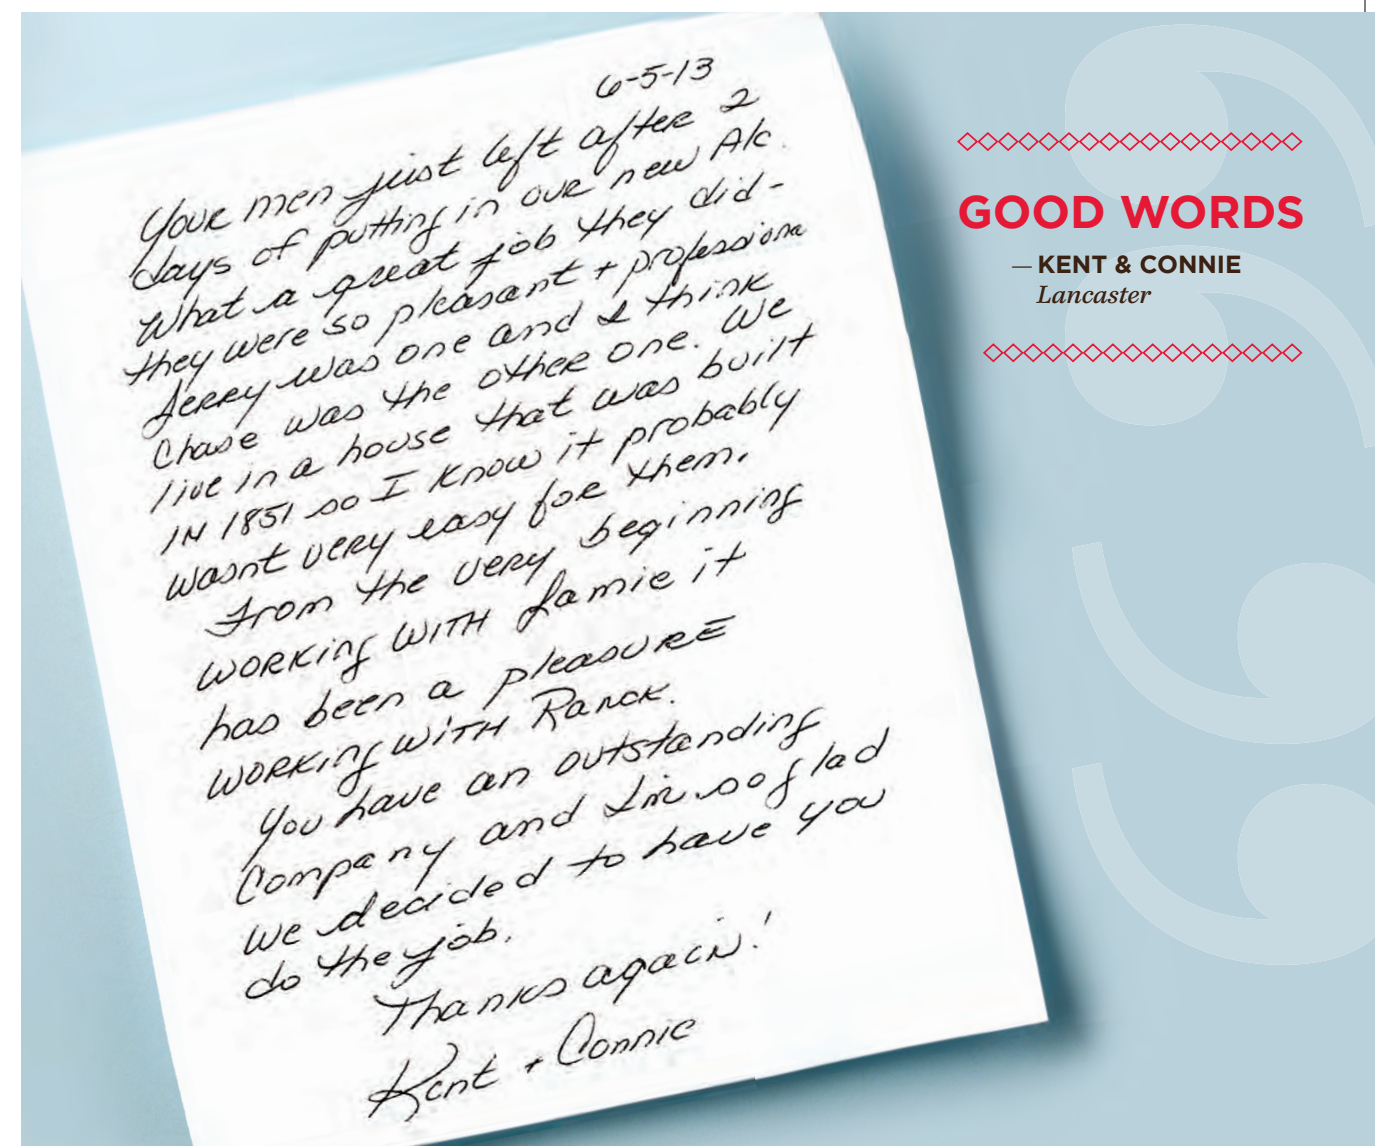 6-5-13
Your men just left after 2
days of putting in our new A/c.
What a great job they did-
they were so pleasant + professiona
Jerry was one and I think
Chase was the other one. We
live in a house that was built
IN 1851 so I know it probably
wasnt very easy for them.
From the very beginning
working WITH Jamie it
has been a pleasure
working WITH Ranck.
You have an outstanding
Company and I'm so glad
we decided to have you
do the job.
Thanks again!
Kent + Connie
GOOD WORDS
— KENT & CONNIE
Lancaster